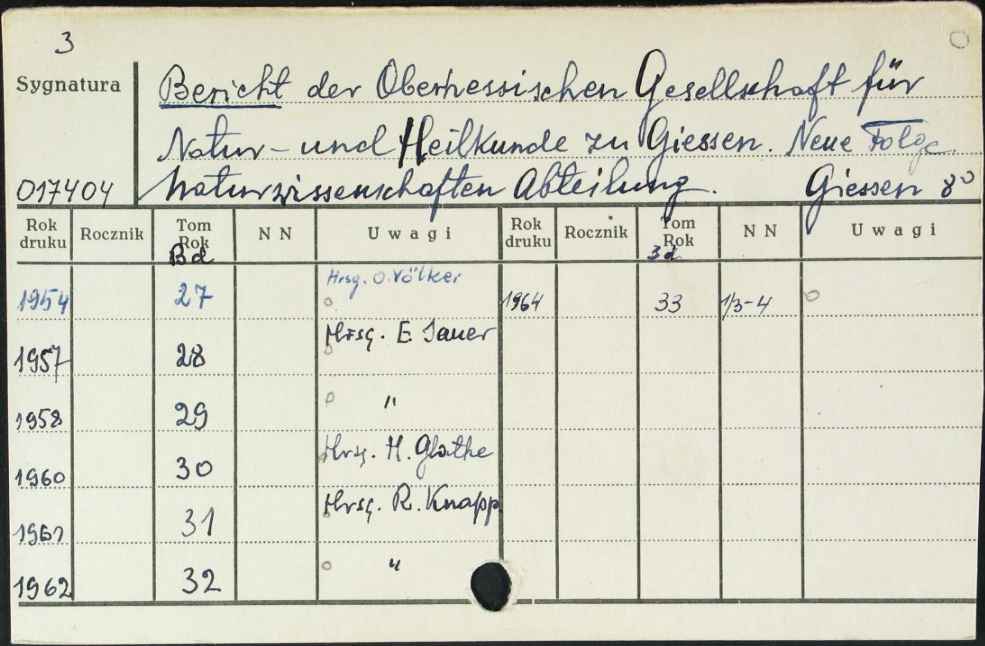 3
Sygnatura
Bericht der Oberhessischen Gesellschaft für
Natur- und Heilkunde zu Giessen. Neue Folge.
017404 Naturwissenschaften Abteilung. Giessen 8°
Rok druku Rocznik Tom Rok NN Uwagi Rok druku Rocznik Tom Rok NN Uwagi
Bd Bd
1954 27 Hrsg. O. Völker 1964 33 1/3-4
1957 28 Hrsg. E. Sauer
1958 29 "
1960 30 Hrsg. H. Glathe
1961 31 Hrsg. R. Knapp
1962 32 "